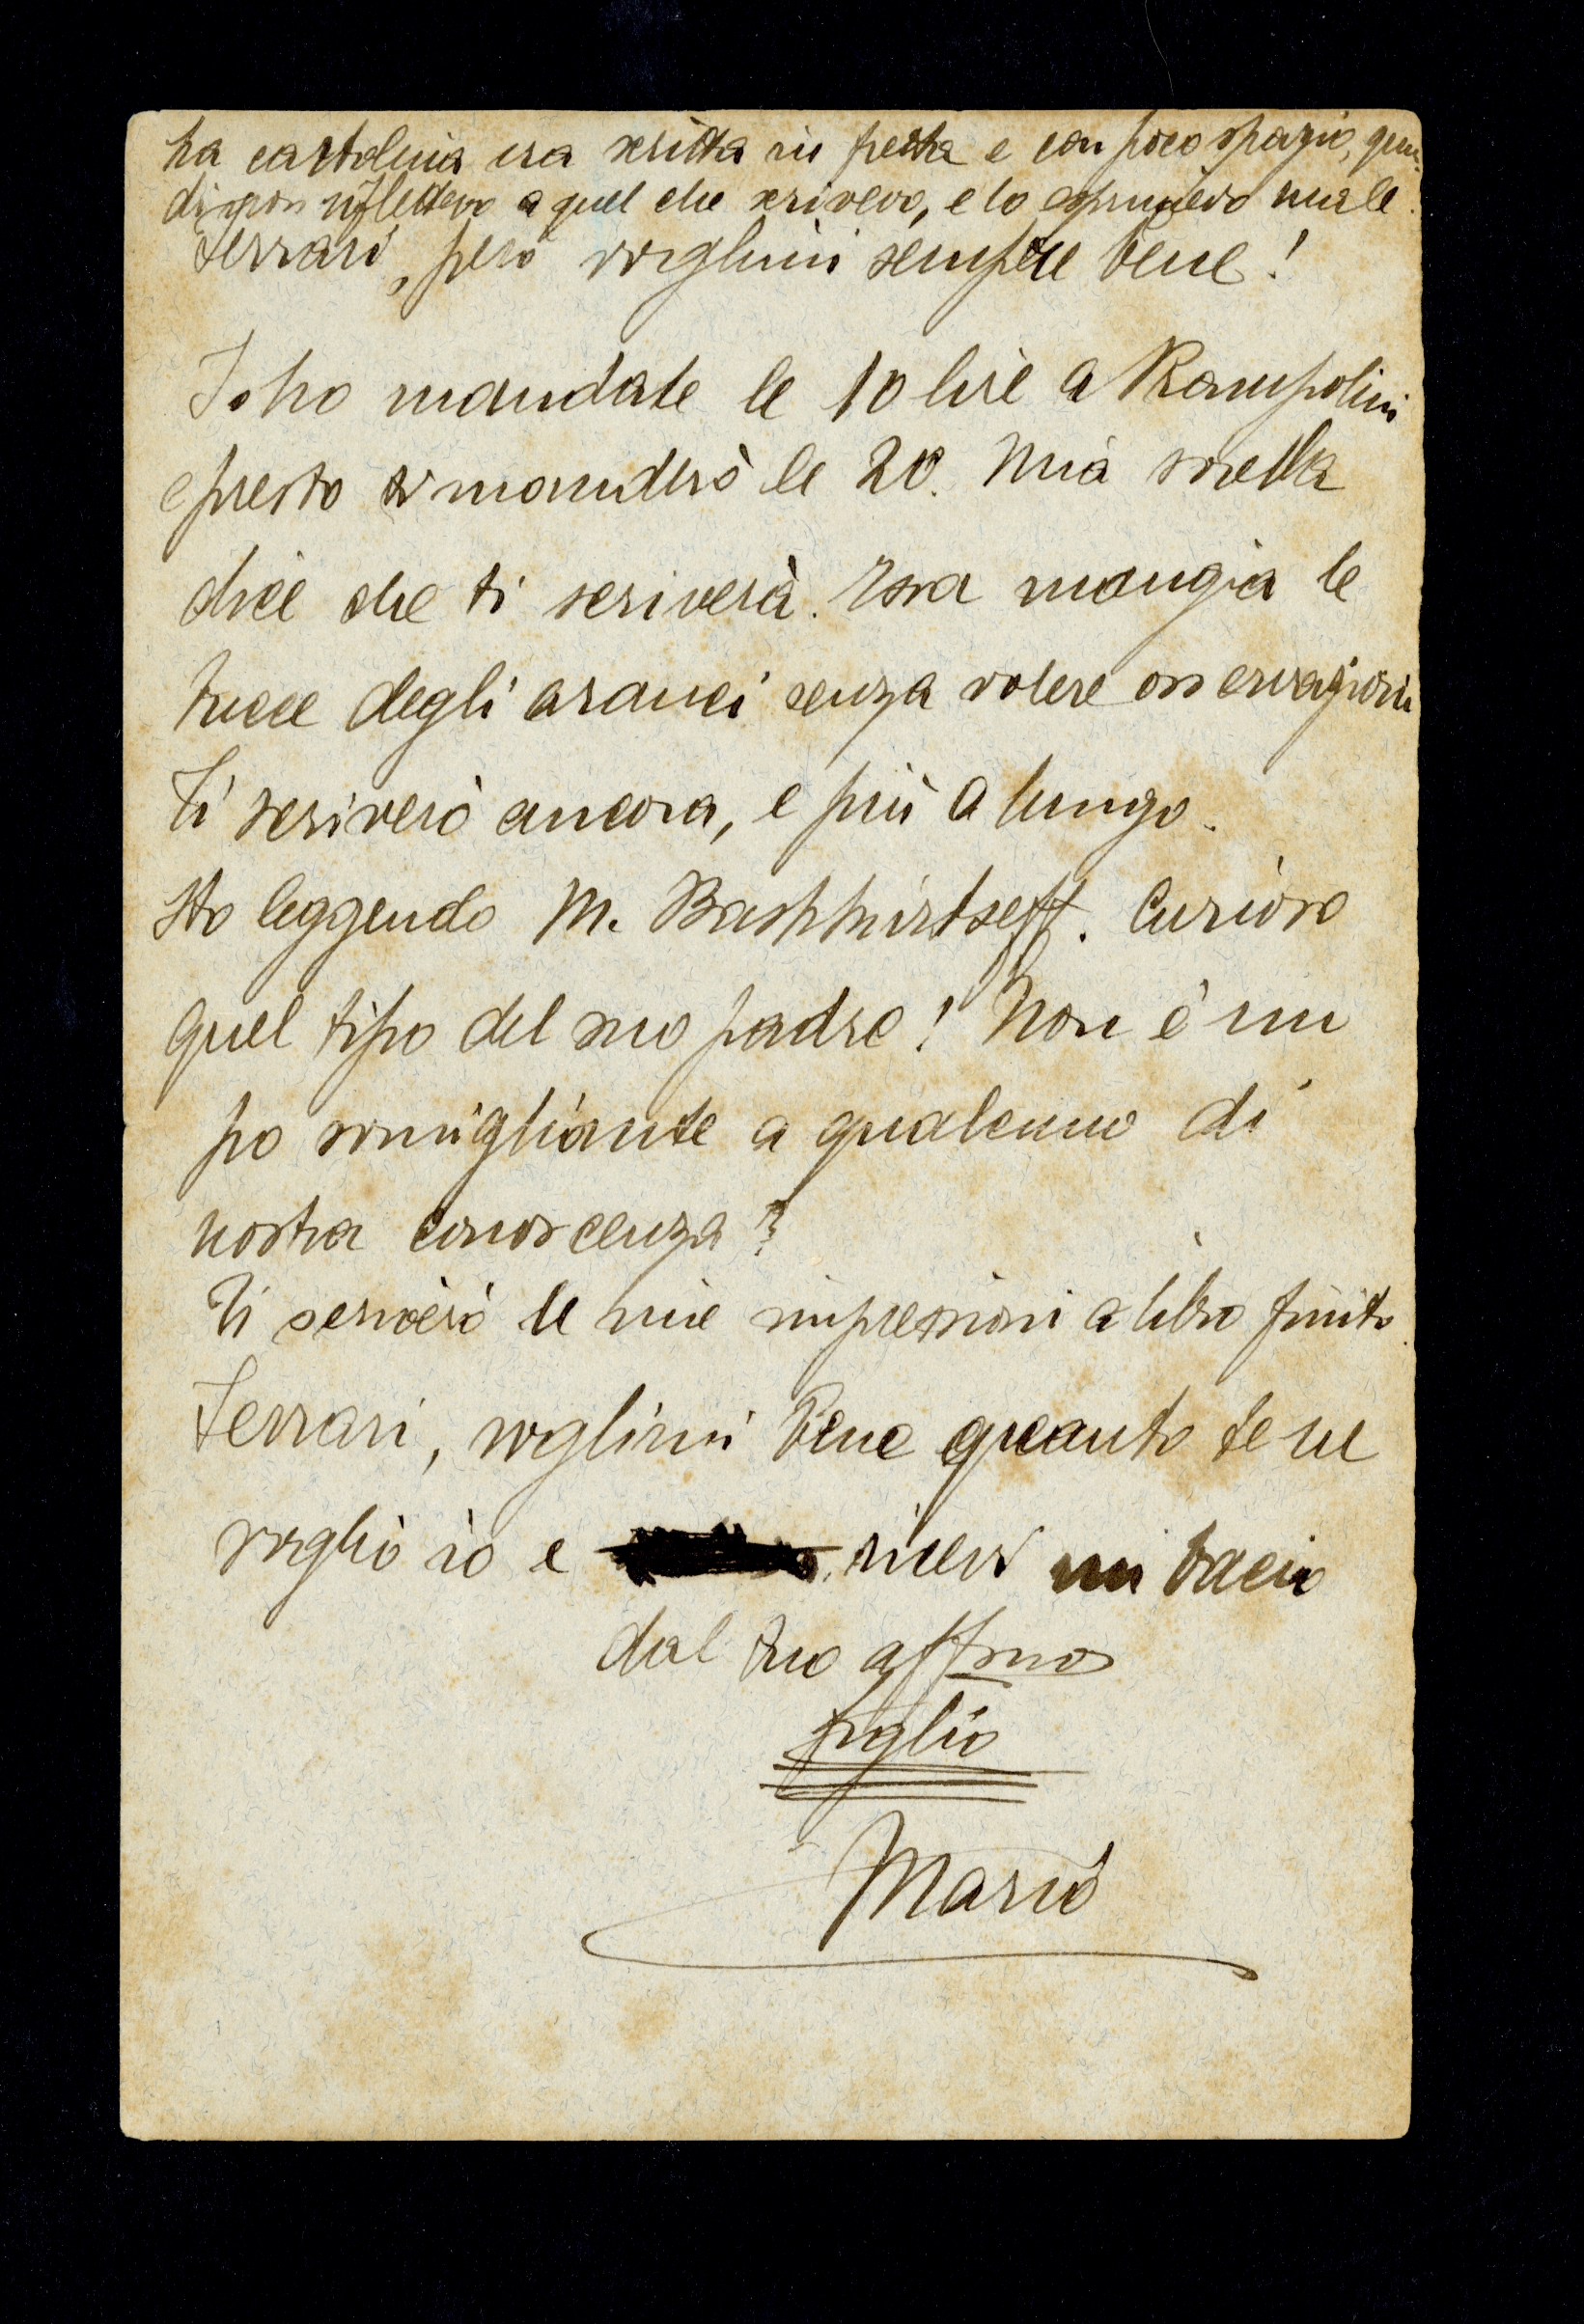 La cartolina era scritta in fretta e con poco spazio, quin-
di non riflettevo a quel che scrivevo, e lo esprimevo male.
Ferrari, però voglimi sempre bene!
Io ho mandate le 10 lire a Rampolini
e presto ti manderò le 20. Mia sorella
dice che ti scriverà. Essa mangia le
bucce degli aranci senza volere osservazioni
Ti scriverò ancora, e più a lungo.
Sto leggendo M. Bashkirtseff. Curioso
quel tipo del suo padre! Non è un
po somigliante a qualcuno di
nostra conoscenza?
Ti scriverò le mie impressioni a libro finito.
Ferrari, voglimi bene quanto te ne
voglio io e ricevi un bacio
dal tuo affmo
figlio
Mario